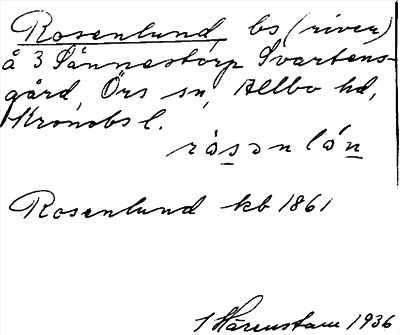 Rosenlund, bs (river)
å 3 Sånnestorp Svartens-
gård, Örs sn, Allbo hd,
Kronobs l.
råsənlón
Rosenlund kb 1861
1 Hårenstam 1936